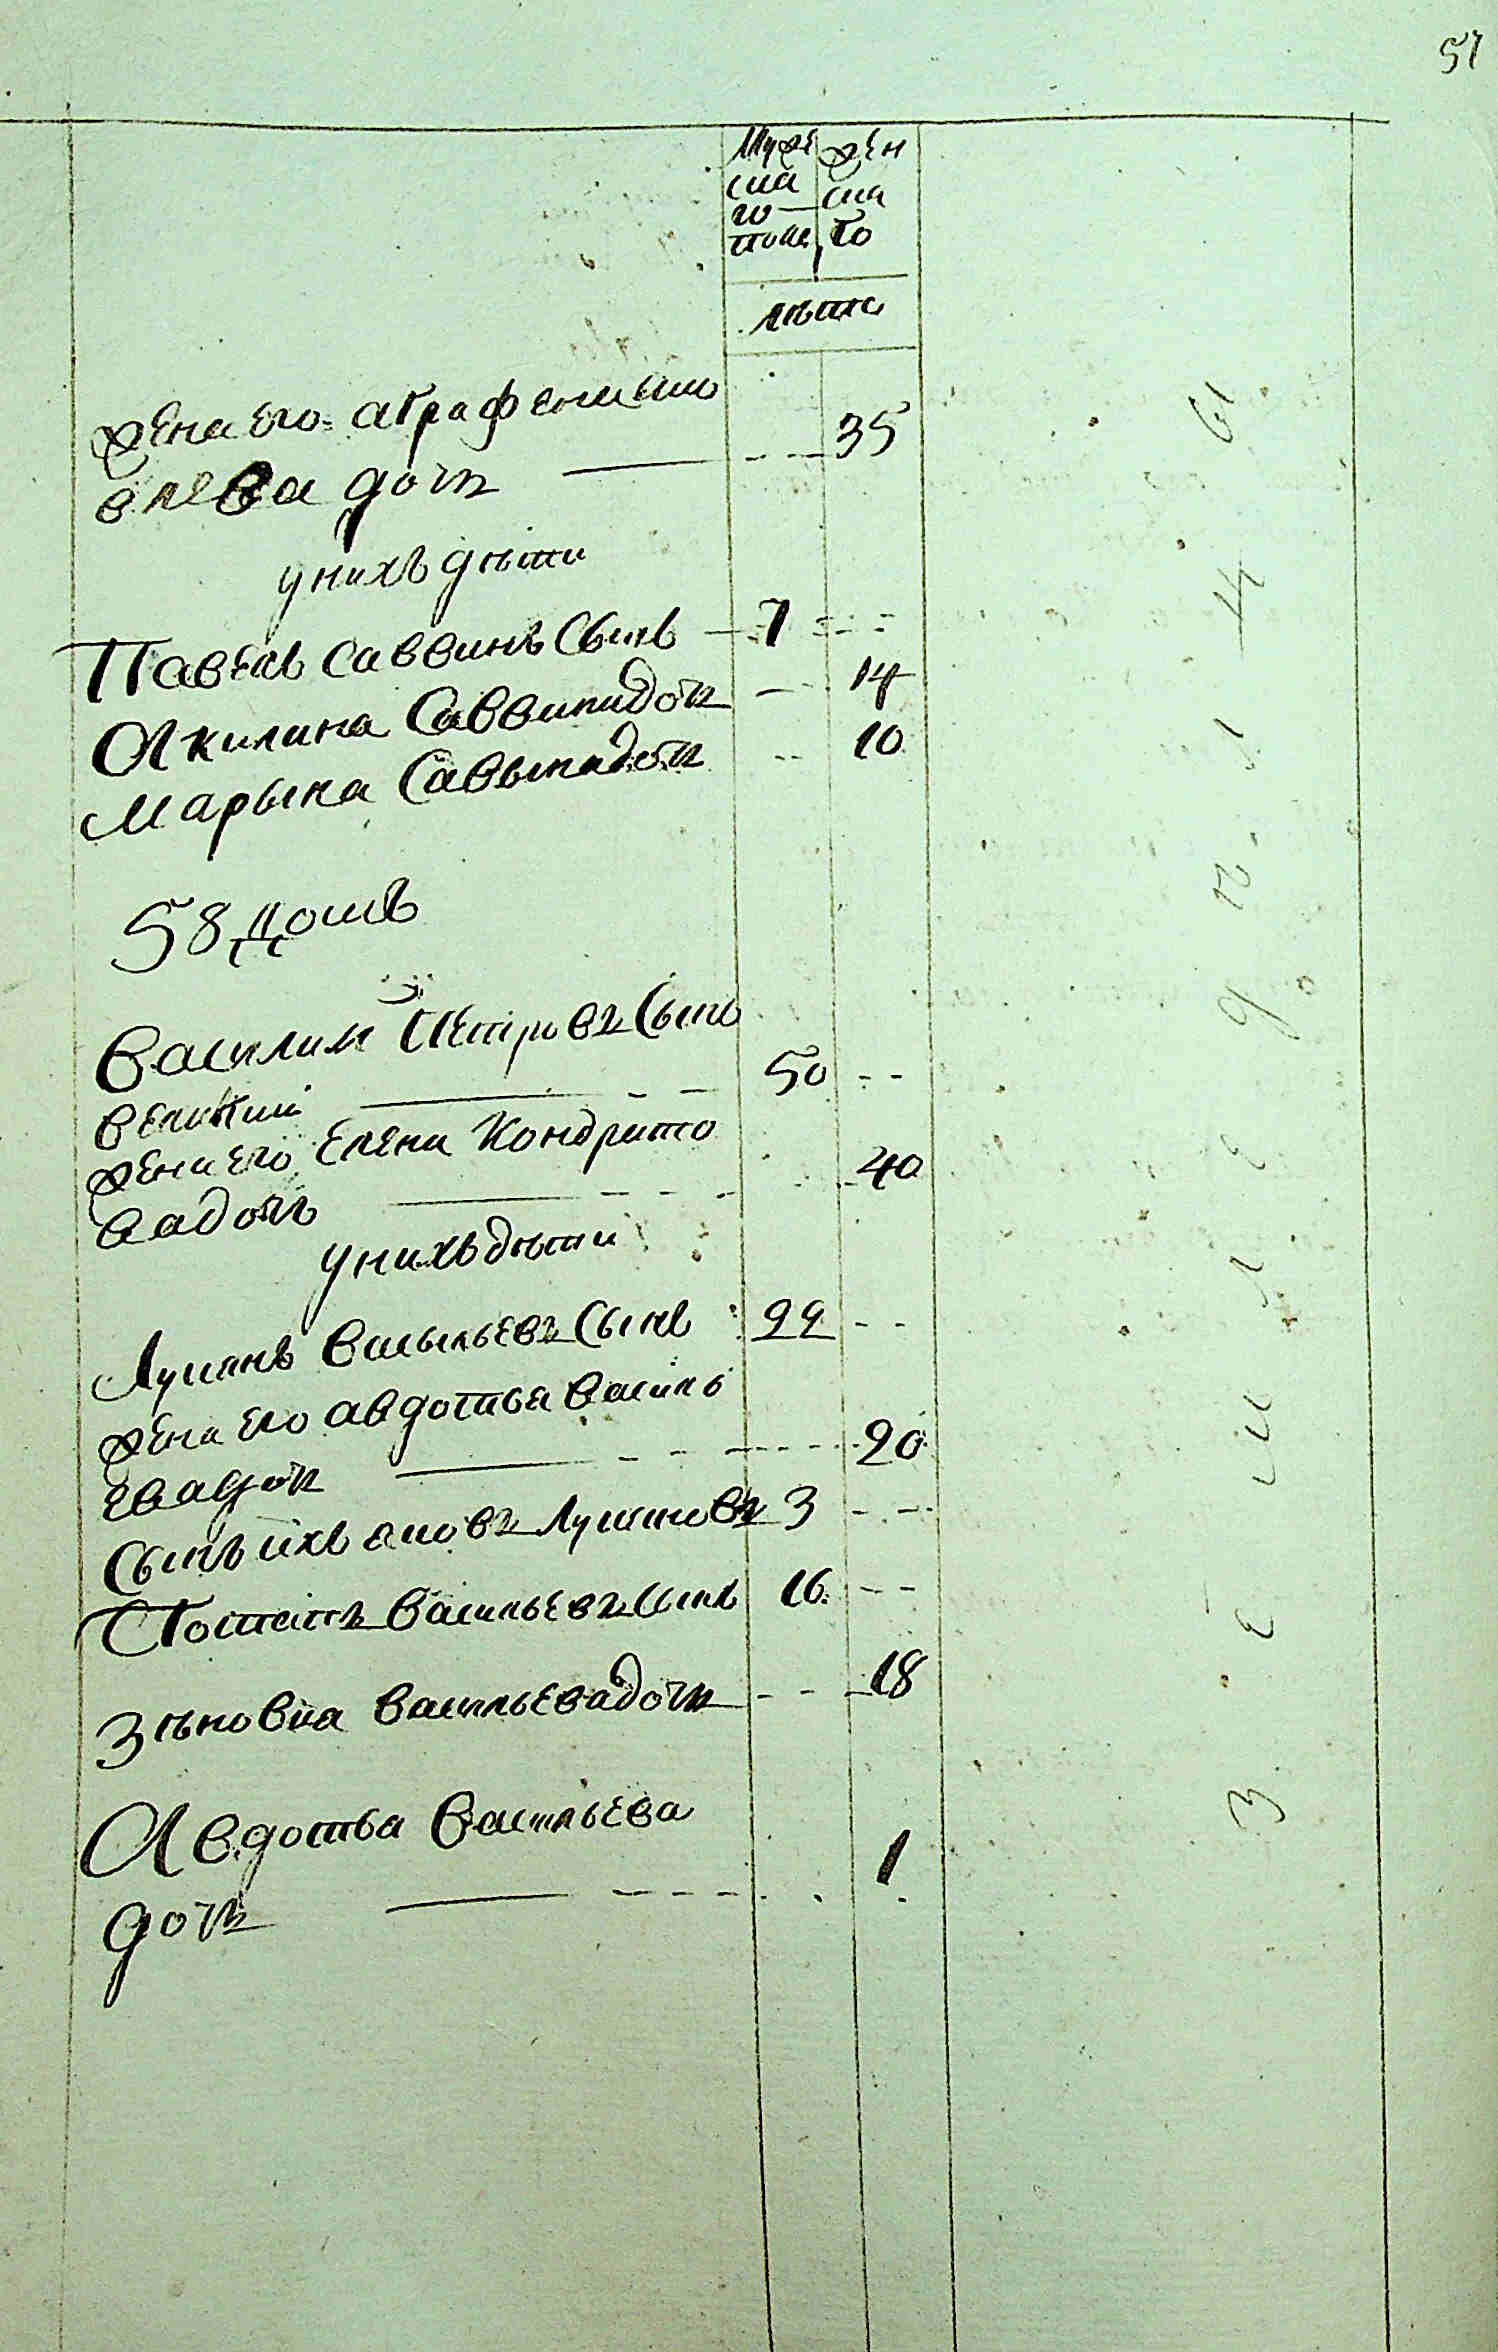 51
муже жен
ска ска
го го
полу
лѣта
жена его аграфена ми
вле ва дочь 35
у нихъ дѣти
Павелъ саввинъ сынъ 7
Акилина Саввина дочь 14
Марына Савына дочь 10
58 домъ
Василий Петровъ сынъ
50
жена его Елена Кондрато
ва дочь 40
у нихъ дѣти
Лукянъ Васыльевъ сынъ 22
жена его авдотья василь
ева дочь 20
Сынъ ихъ яковъ Лукяновъ 3
Потапъ Васильевъ сынъ 16
Зѣновия васильева дочь 18
Авдотья Васильева
дочь 1
З е м л е д ѣ л ц ы